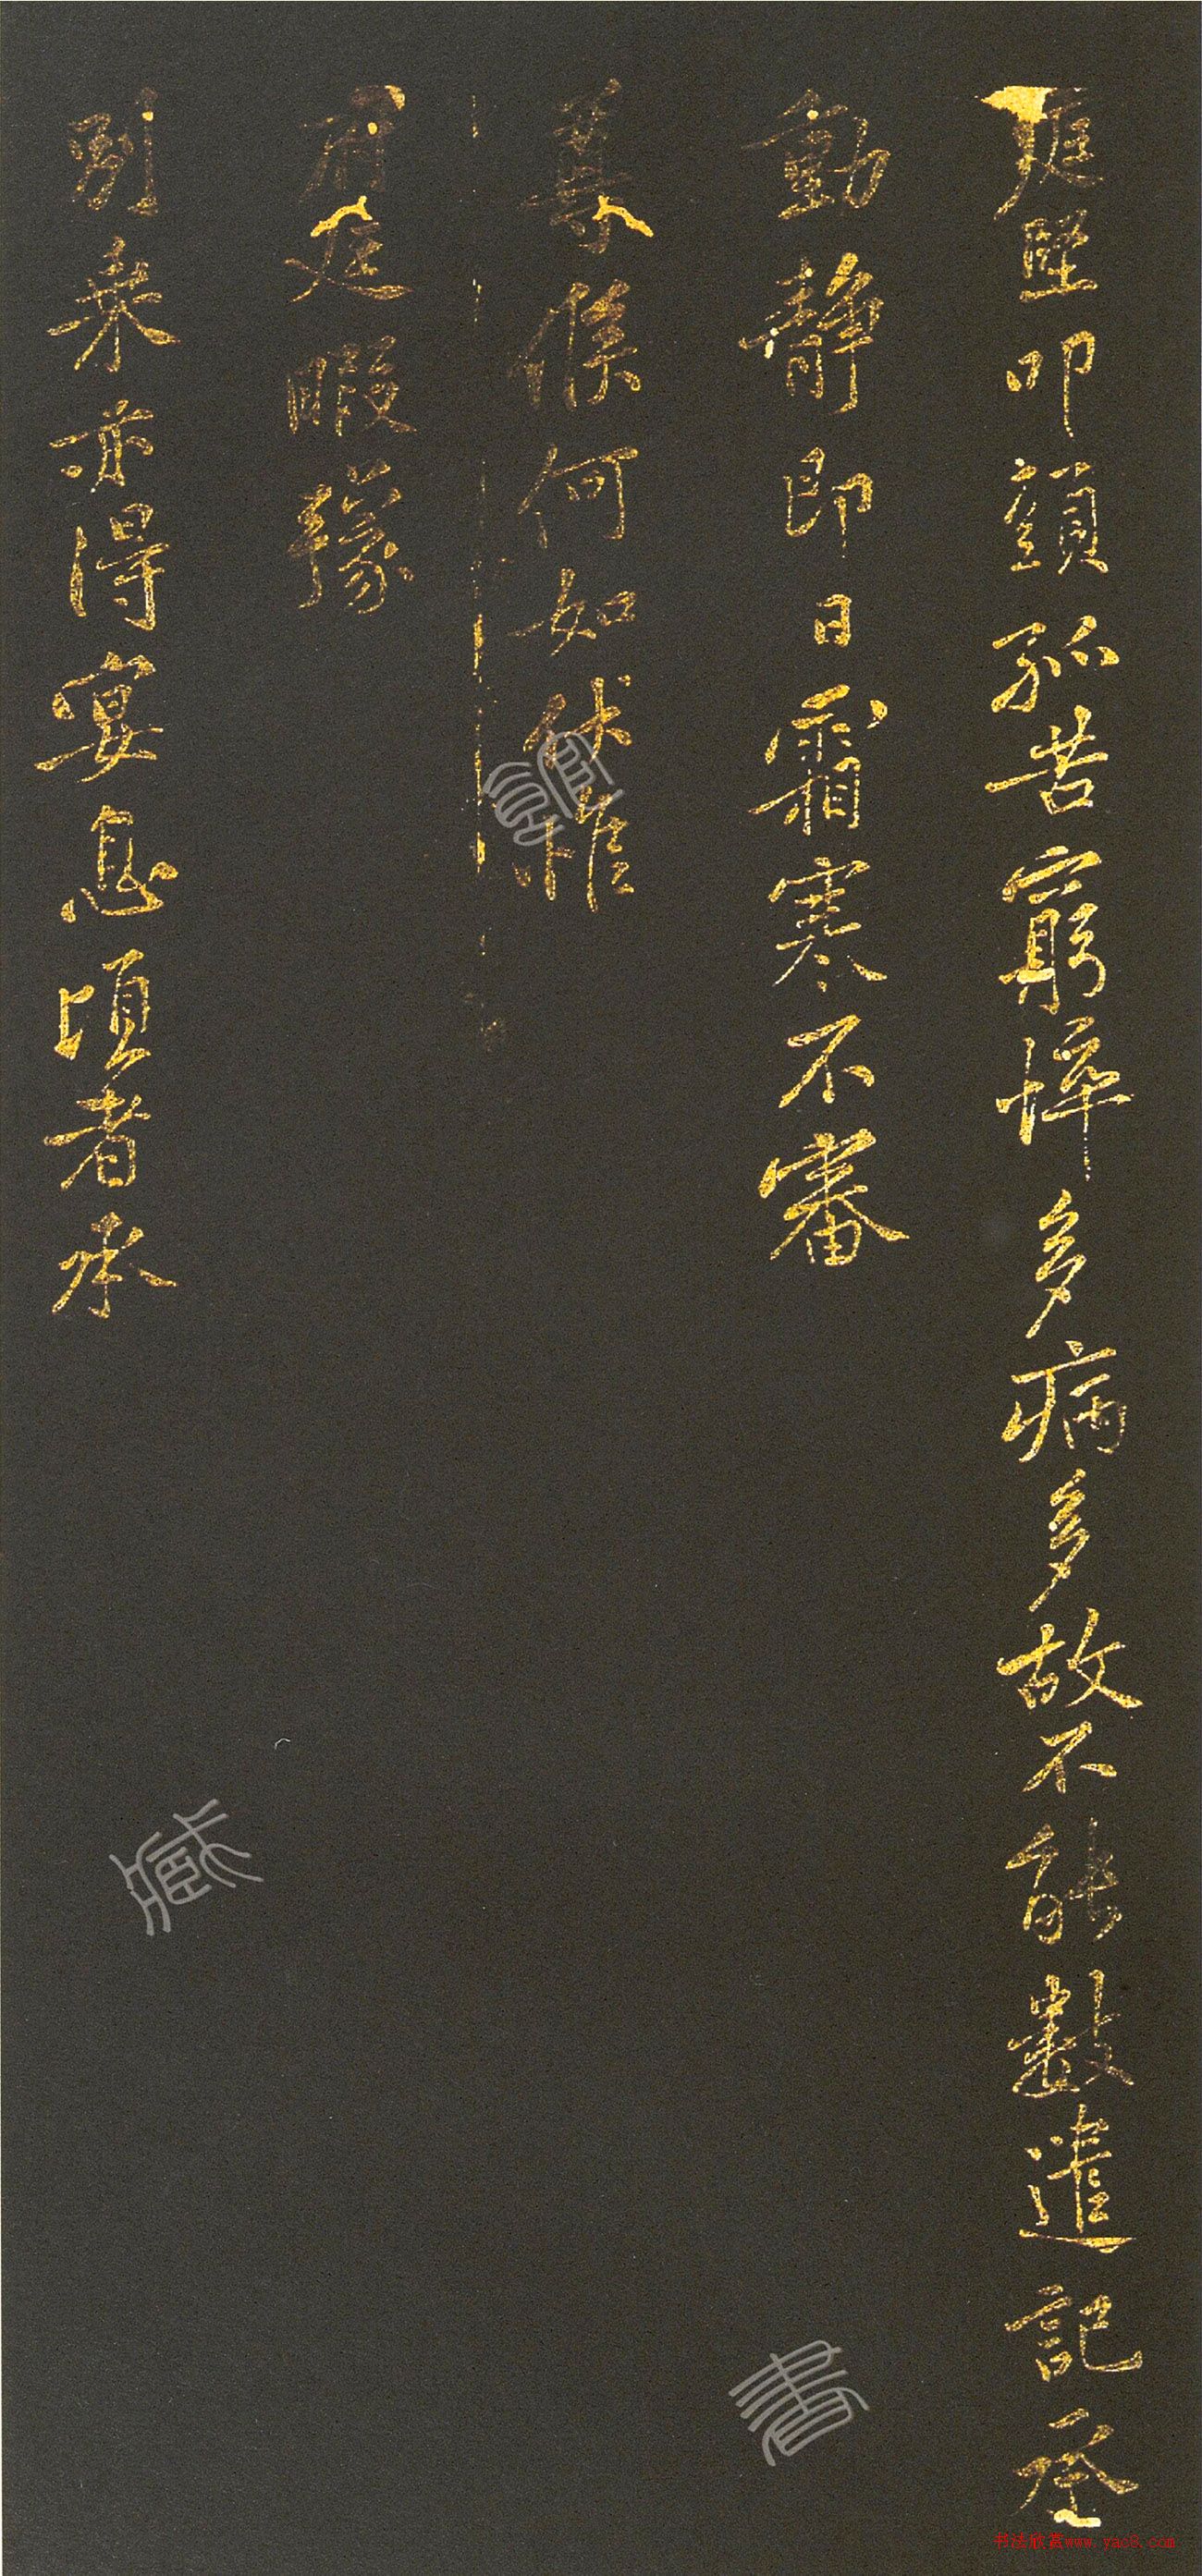 庭堅叩頭孤苦窮悴多病多故不能數進記承
動靜即日霜寒不審
尊候何如伏惟
府廷暇豫
別乘亦得宴息頃者承
書法欣赏www.yac8.com